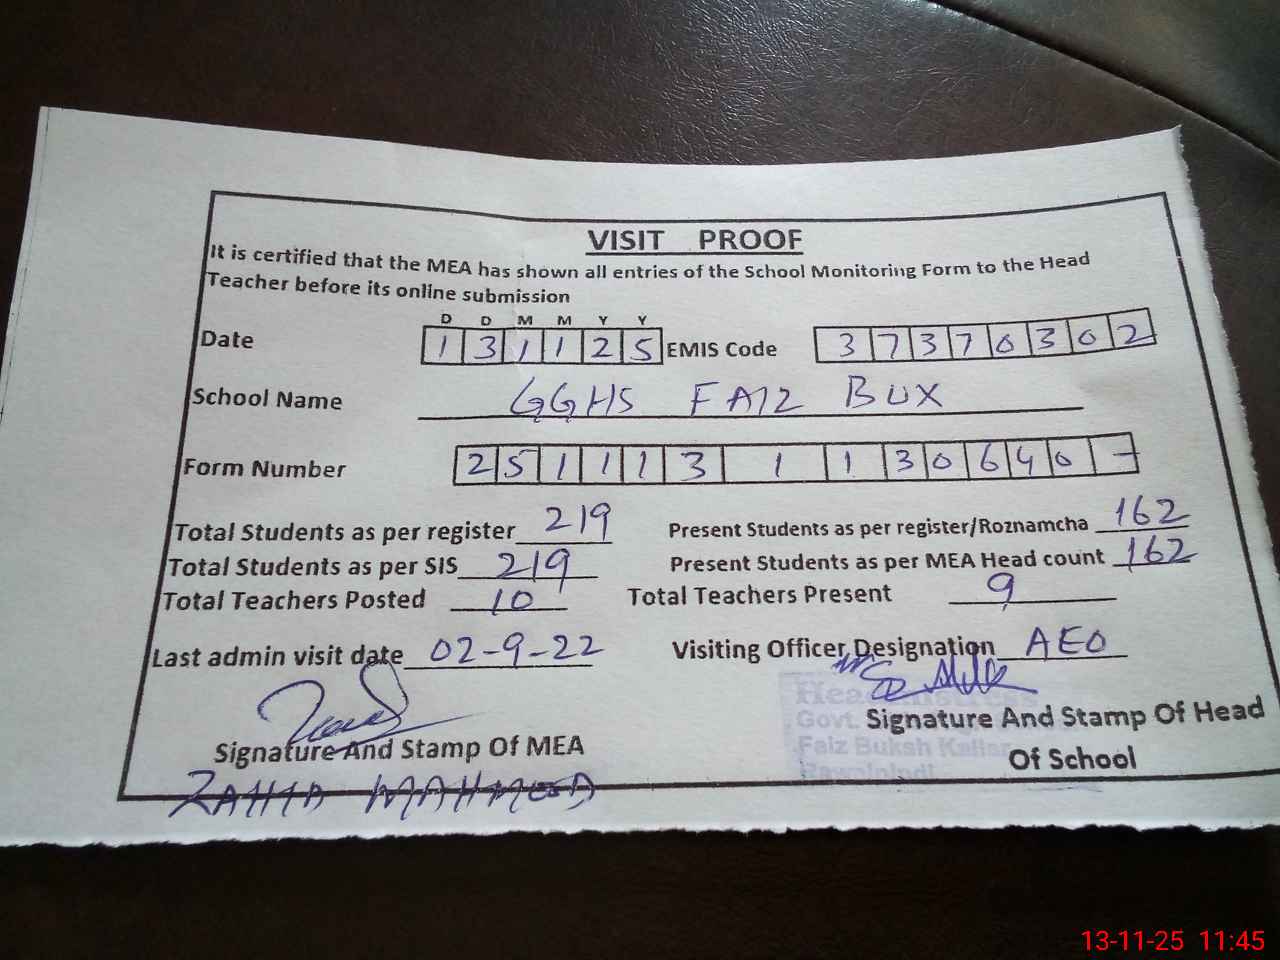 VISIT PROOF
It is certified that the MEA has shown all entries of the School Monitoring Form to the Head
Teacher before its online submission
D D M M Y Y
Date 1 3 1 1 2 5 EMIS Code 3 7 3 7 0 3 0 2
School Name GGHS FAIZ BUX
Form Number 2 5 1 1 1 3 1 1 3 0 6 4 0 -
Total Students as per register 219 Present Students as per register/Roznamcha 162
Total Students as per SIS 219 Present Students as per MEA Head count 162
Total Teachers Posted 10 Total Teachers Present 9
Last admin visit date 02-9-22 Visiting Officer Designation AEO
Signature And Stamp Of MEA
Signature And Stamp Of Head
Of School
Govt.
Faiz Buksh Kallar
Rawalpindi
13-11-25 11:45